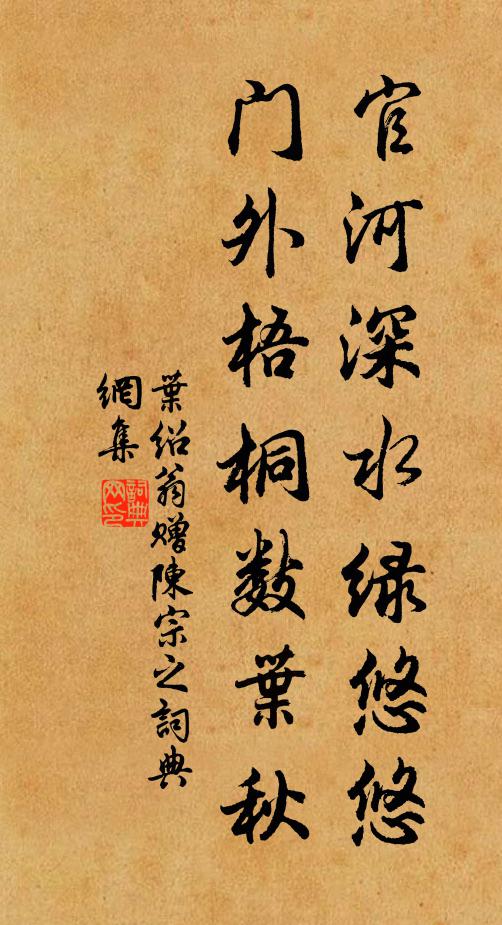 官河深水绿悠悠
门外梧桐数葉秋
葉绍翁赠陳宗之詞典
網集
詞典網印